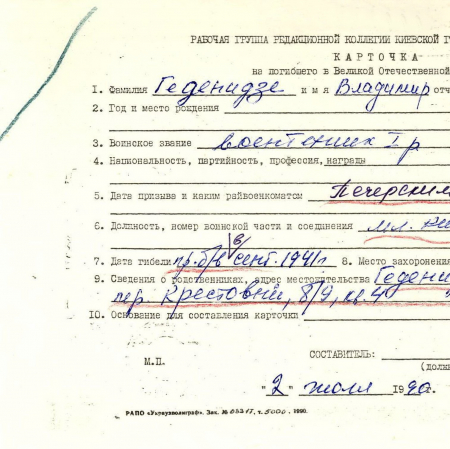 РАБОЧАЯ ГРУППА РЕДАКЦИОННОЙ КОЛЛЕГИИ КИЕВСКОЙ Г
КАРТОЧКА
на погибшего в Великой Отечественной
1. Фамилия Геденидзе имя Владимир отч
2. Год и место рождения
3. Воинское звание воентехник I р
4. Национальность, партийность, профессия, награды
5. Дата призыва и каким райвоенкоматом Печерским
6. Должность, номер воинской части и соединения мл.
7. Дата гибели пр. б/в в сент. 1941 г. 8. Место захоронения
9. Сведения о родственниках, адрес местожительства Гедени
пер. Крестовый, 8/9, кв. 4
10. Основание для составления карточки
СОСТАВИТЕЛЬ:
М.П. (долж
"2" июля 1990г.
РАПО «Укрвузполиграф». Зак. № т. 5000. 1990.